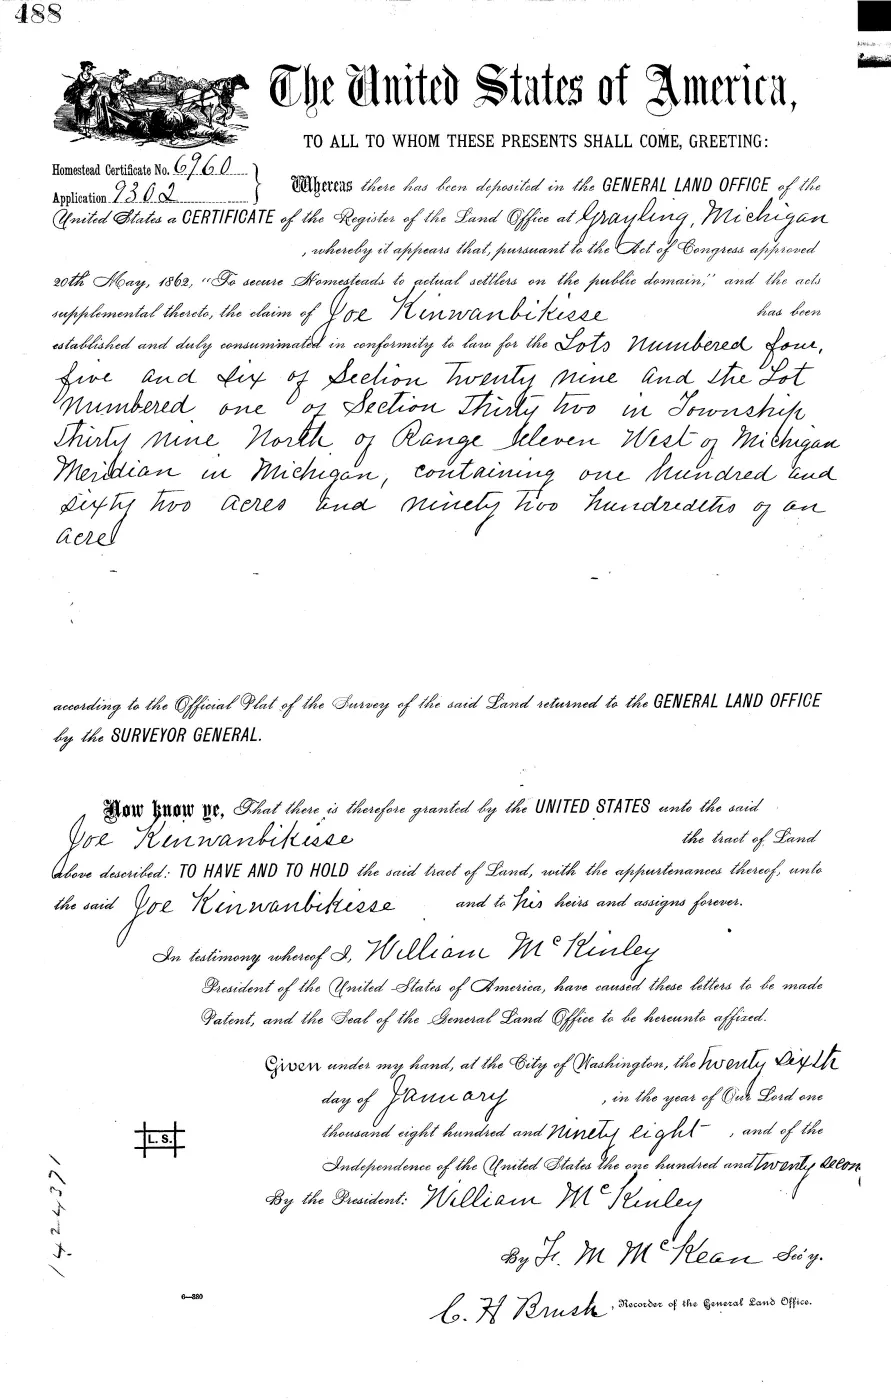 488
The United States of America,
TO ALL TO WHOM THESE PRESENTS SHALL COME, GREETING:
Homestead Certificate No. 6960
Application 9302
Whereas there has been deposited in the GENERAL LAND OFFICE of the
United States a CERTIFICATE of the Register of the Land Office at Grayling, Michigan
, whereby it appears that, pursuant to the Act of Congress approved
20th May, 1862, "To secure Homesteads to actual settlers on the public domain," and the acts
supplemental thereto, the claim of Joe Kinwanbikisse has been
established and duly consummated in conformity to law for the Lots numbered four,
five and six of Section twenty nine and the Lot
numbered one of Section thirty two in Township
thirty nine North of Range eleven West of Michigan
Meridian in Michigan, containing one hundred and
sixty two acres and ninety two hundredths of an
acre
according to the Official Plat of the Survey of the said Land returned to the GENERAL LAND OFFICE
by the SURVEYOR GENERAL.
Now know ye, That there is therefore granted by the UNITED STATES unto the said
Joe Kinwanbikisse the tract of Land
above described: TO HAVE AND TO HOLD the said tract of Land, with the appurtenances thereof, unto
the said Joe Kinwanbikisse and to his heirs and assigns forever.
In testimony whereof I, William McKinley
President of the United States of America, have caused these letters to be made
Patent, and the Seal of the General Land Office to be hereunto affixed.
Given under my hand, at the City of Washington, the twenty sixth
day of January , in the year of Our Lord one
thousand eight hundred and ninety eight , and of the
Independence of the United States the one hundred and twenty secon
L. S.
By the President: William McKinley
By F. M McKean Sec'y.
C. H Brush , Recorder of the General Land Office.
6—380
1424371